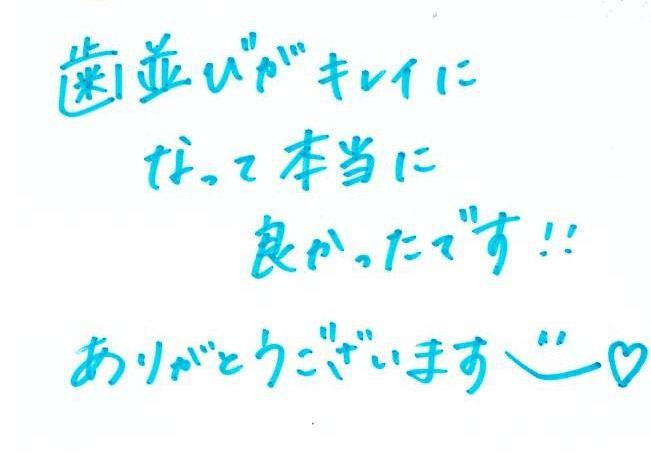 歯並びがキレイに
なって本当に
良かったです!!
ありがとうございます♡